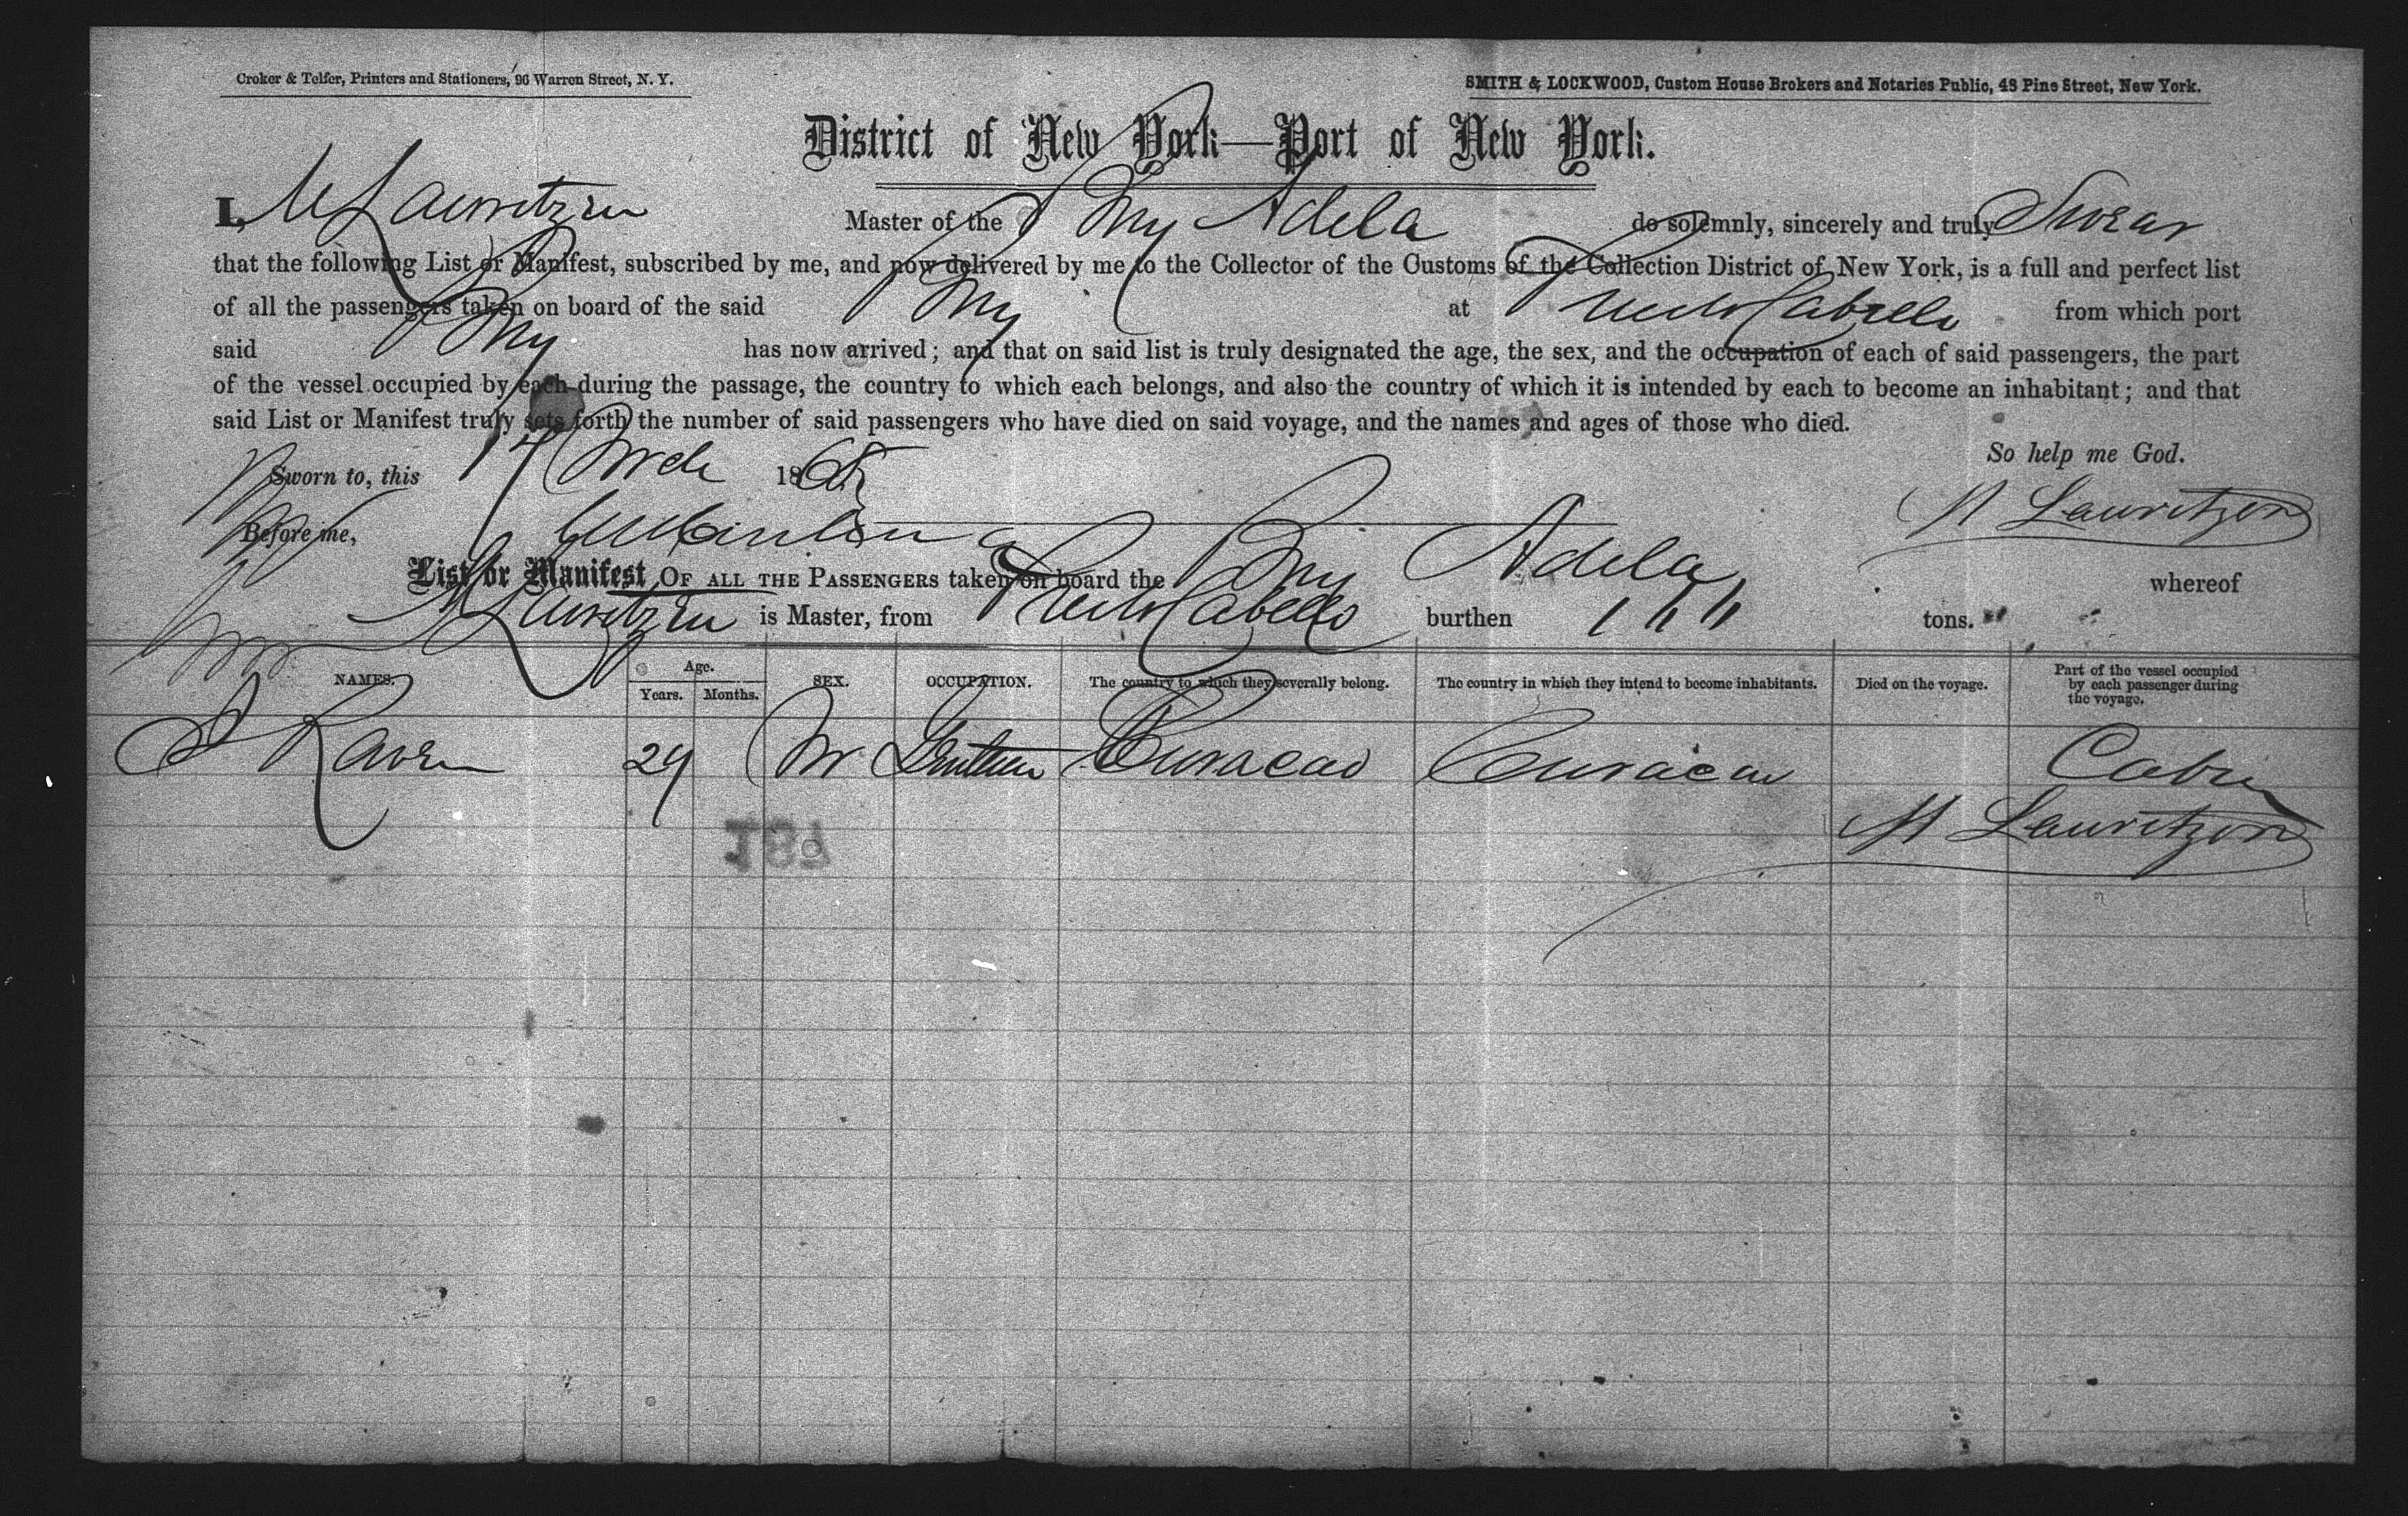 Croker & Telfer, Printers and Stationers, 96 Warren Street, N. Y.
SMITH & LOCKWOOD, Custom House Brokers and Notaries Public, 48 Pine Street, New York.
District of New York—Port of New York.
I, M Lauritzen Master of the Adela do solemnly, sincerely and truly Swear
that the following List or Manifest, subscribed by me, and now delivered by me to the Collector of the Customs of the Collection District of New York, is a full and perfect list
of all the passengers taken on board of the said at Puerto Cabello from which port
said has now arrived; and that on said list is truly designated the age, the sex, and the occupation of each of said passengers, the part
of the vessel occupied by each during the passage, the country to which each belongs, and also the country of which it is intended by each to become an inhabitant; and that
said List or Manifest truly sets forth the number of said passengers who have died on said voyage, and the names and ages of those who died.
So help me God.
Sworn to, this 17 Mch 186
M Lauritzen
Before me,
List or Manifest OF ALL THE PASSENGERS taken on board the Adela whereof
M Lauritzen is Master, from Puerto Cabello burthen tons.
NAMES. Age. Years. Months. SEX. OCCUPATION. The country to which they severally belong. The country in which they intend to become inhabitants. Died on the voyage. Part of the vessel occupied by each passenger during the voyage.
Raven 29 M Curacao Curacao Cabin
M Lauritzen